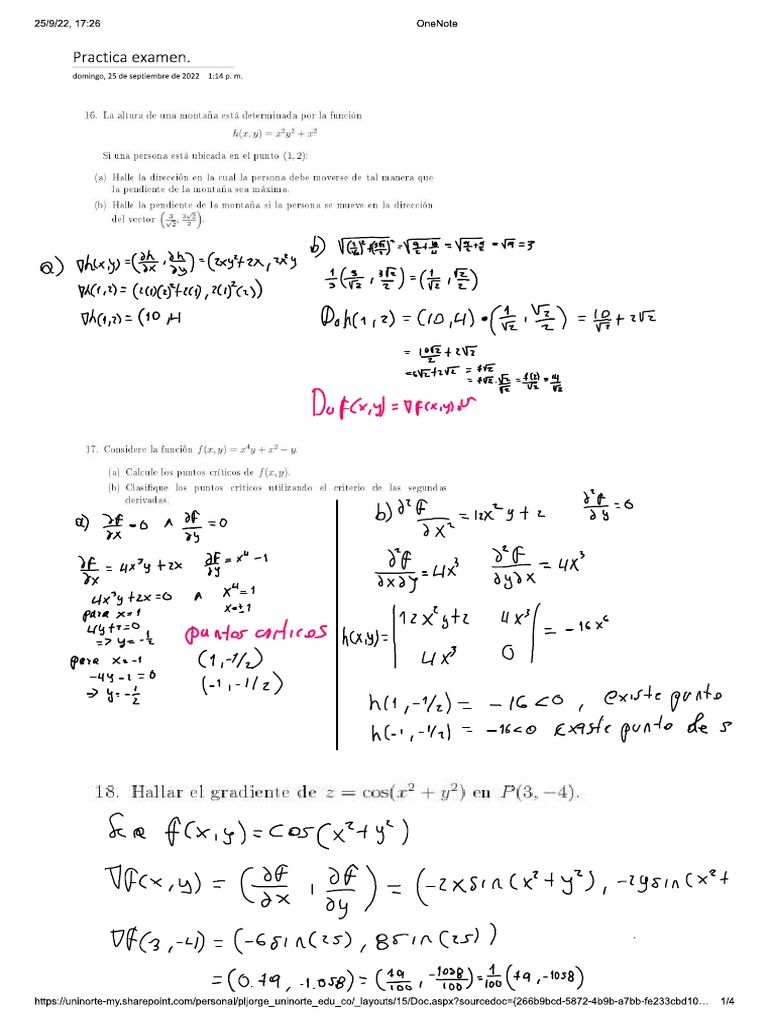 25/9/22, 17:26 OneNote
Practica examen.
domingo, 25 de septiembre de 2022 1:14 p. m.
16. La altura de una montaña está determinada por la función
h(x, y) = x²y² + x²
Si una persona está ubicada en el punto (1, 2):
(a) Halle la dirección en la cual la persona debe moverse de tal manera que
la pendiente de la montaña sea máxima.
(b) Halle la pendiente de la montaña si la persona se mueve en la dirección
del vector (3/√2, 3√2/2).
a) ∇h(x,y)=(∂h/∂x, ∂h/∂y)=(2xy²+2x, 2x²y
∇h(1,2)=(2(1)(2)²+2(1), 2(1)²(2))
∇h(1,2)=(10 4
b) √((3/√2)²+(3√2/2)²)=√(9/2+18/4)=√(9/2+9/2)=√9=3
1/3(3/√2, 3√2/2)=(1/√2, √2/2)
Duh(1,2)=(10,4)•(1/√2, √2/2)=10/√2+2√2
=10√2/2+2√2
=5√2+2√2=7√2
=7√2·√2/√2=7(2)/√2=14/√2
Du f(x,y)=∇f(x,y).u
17. Considere la función f(x, y) = x⁴y + x² − y.
(a) Calcule los puntos críticos de f(x, y).
(b) Clasifique los puntos criticos utilizando el criterio de las segundas
derivadas.
a) ∂f/∂x=0 ∧ ∂f/∂y=0
∂f/∂x=4x³y+2x ∂f/∂y=x⁴−1
4x³y+2x=0 ∧ x⁴=1
para x=1 x=±1
4y+2=0
=> y=-1/2
para x=-1
-4y-2=0
=> y=-1/2
puntos criticos
(1,-1/2)
(-1,-1/2)
b) ∂²f/∂x²=12x²y+2 ∂²f/∂y=0
∂²f/∂x∂y=4x³ ∂²f/∂y∂x=4x³
h(x,y)=|12x²y+2 4x³|=-16x⁶
|4x³ 0|
h(1,-1/2)=-16<0, existe punto
h(-1,-1/2)=-16<0 existe punto de s
18. Hallar el gradiente de z = cos(x² + y²) en P(3, −4).
Sea f(x,y)=cos(x²+y²)
∇f(x,y)=(∂f/∂x, ∂f/∂y)=(-2xsin(x²+y²), -2ysin(x²+
∇f(3,-4)=(-6sin(25), 8sin(25))
=(0.79, -1.058)=(79/100, -1058/100)=1/100(79,-1058)
https://uninorte-my.sharepoint.com/personal/pljorge_uninorte_edu_co/_layouts/15/Doc.aspx?sourcedoc={266b9bcd-5872-4b9b-a7bb-fe233cbd10… 1/4